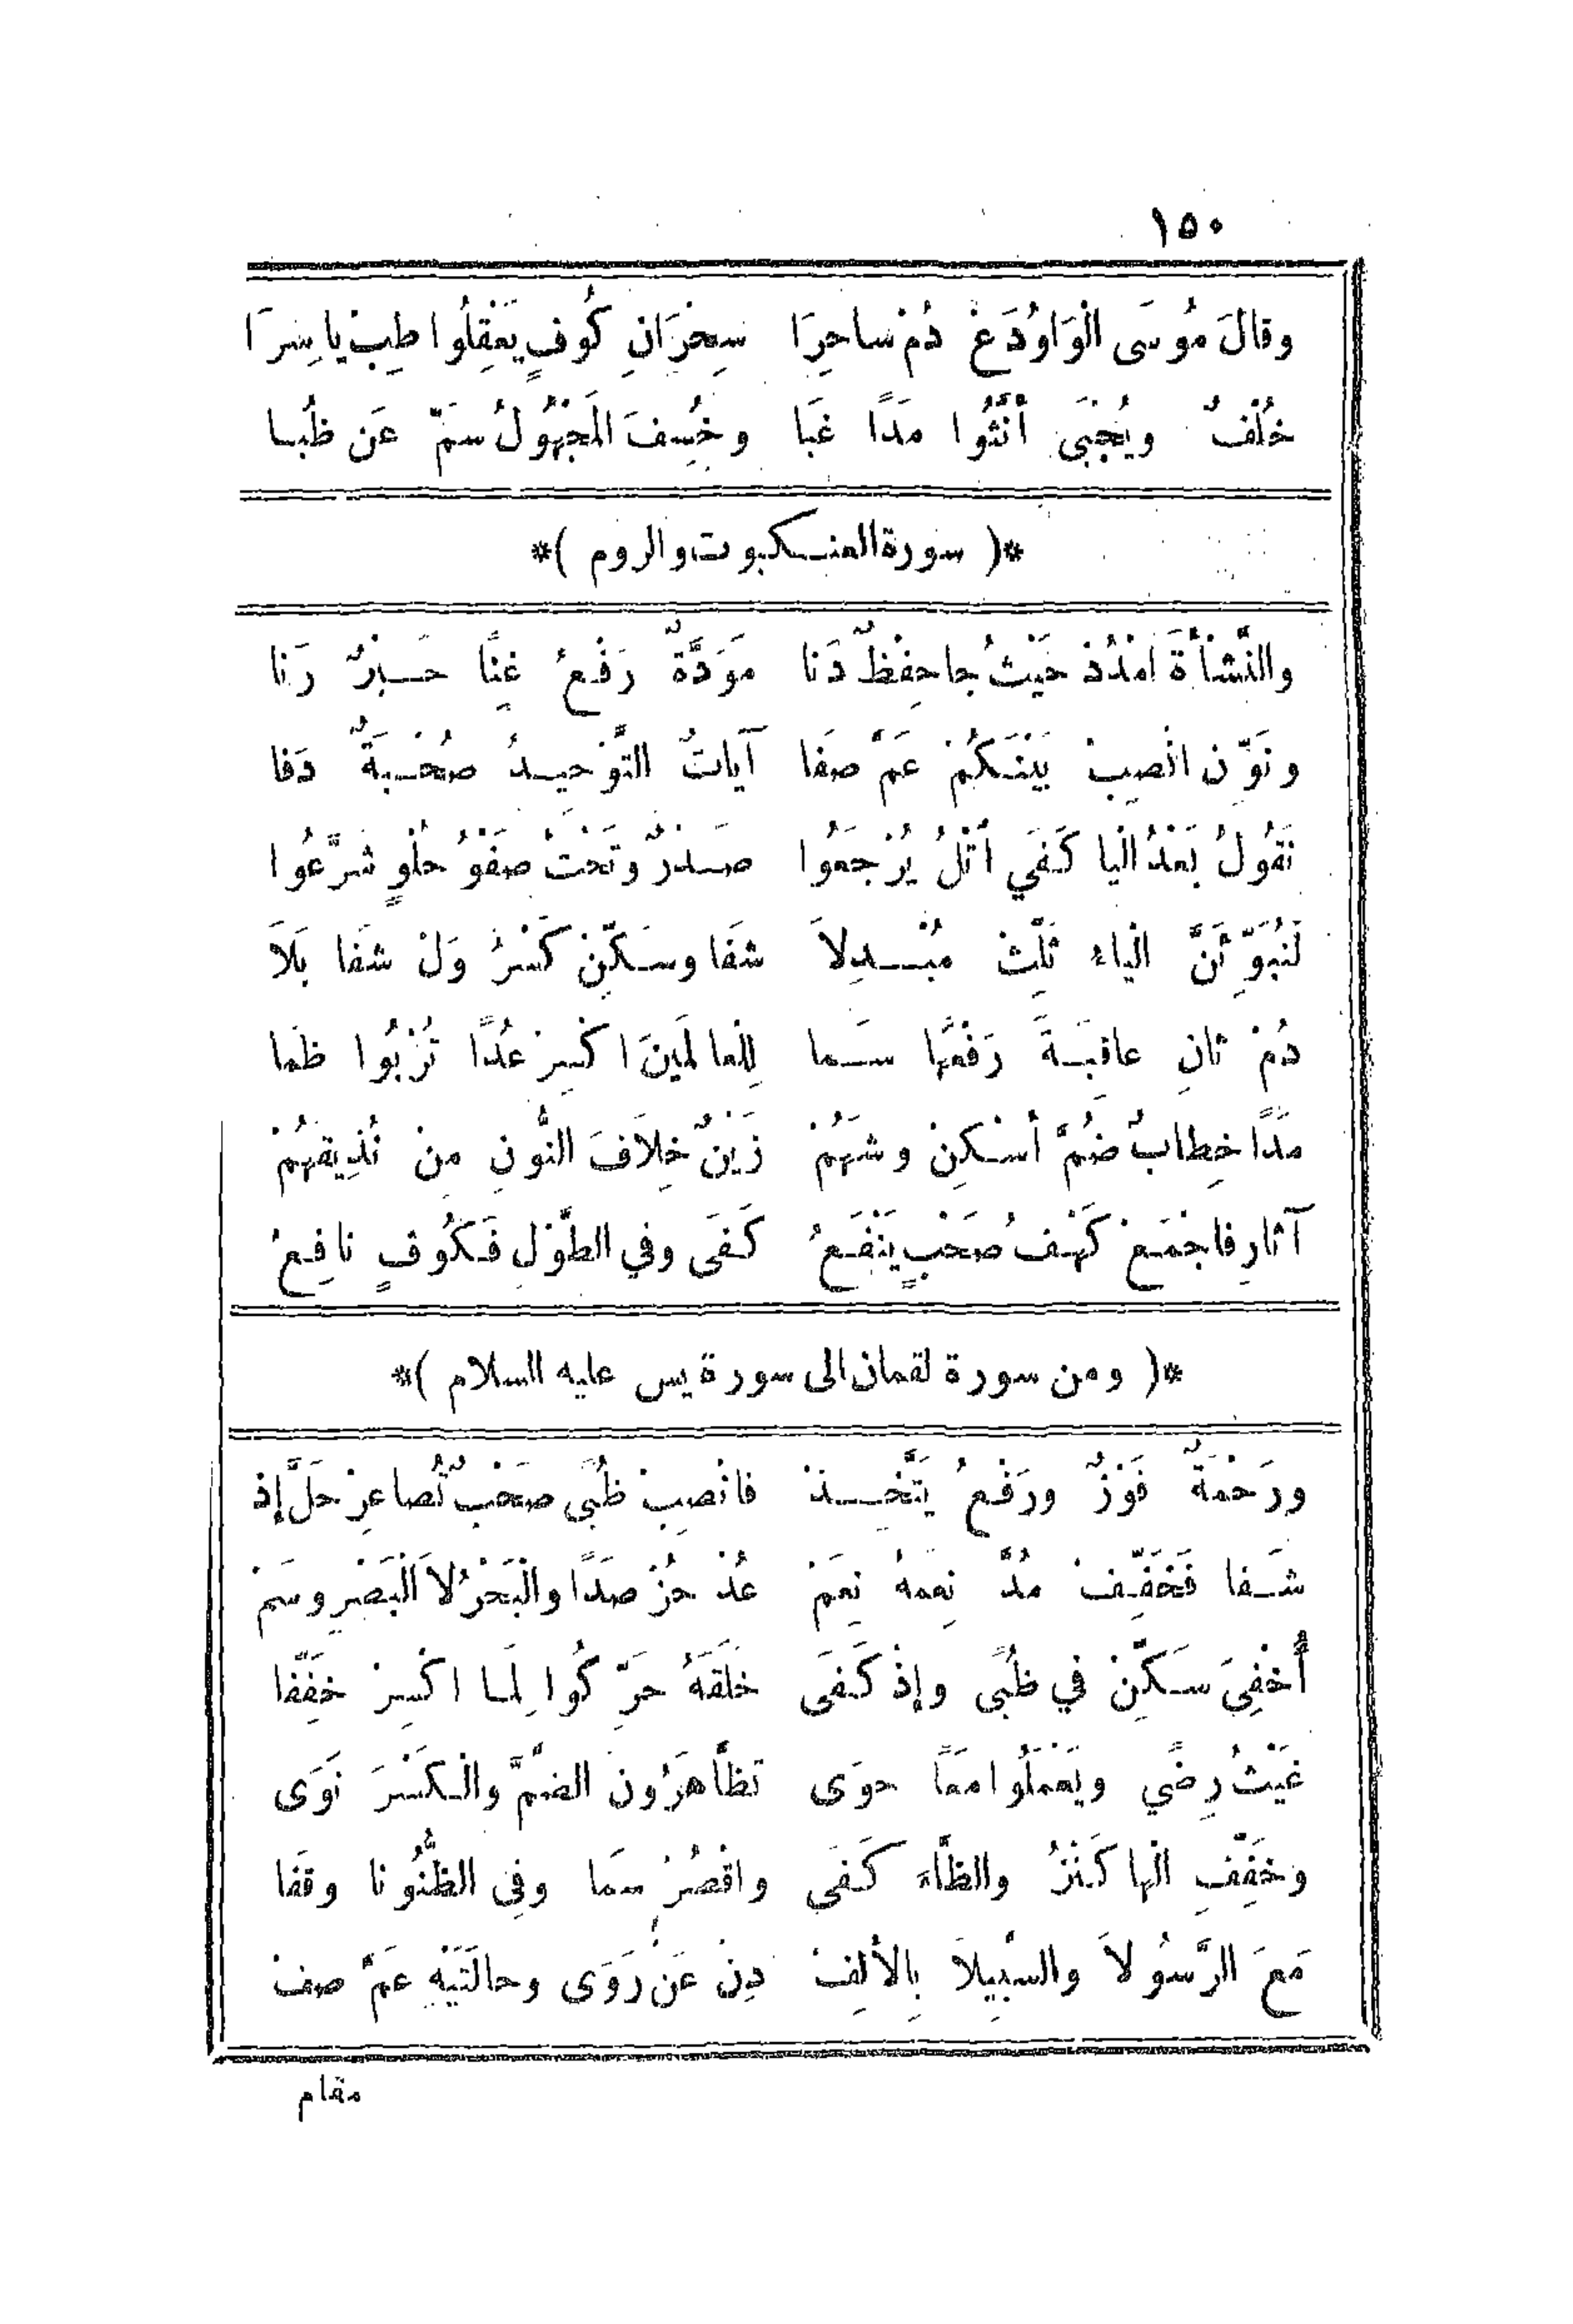 ١٥٠
وقالَ مُوسَى الْوَاوُ دَعْ دُمْ ساحِرَا سِحْرَانِ كُوفٍ يَعْقِلُوا طِبْ يا سِرَا
خُلْفٌ ويُجْبَى أَنَّثُوا مَدًا غَبَا وخُسِفَ المَجْهُولُ سَمِّ عَن ظُبا
*( سورة العنكبوت والروم )*
والنَّشْأَةَ امْدُدْ حَيْثُ جا حِفْظٌ دَنا مَوَدَّةٌ رَفْعُ غِنًا حَبْرٌ رَنا
ونَوِّن انْصِبْ بَيْنَكُمْ عَمَّ صَفَا آياتُ التَّوْحِيدُ صُحْبَةٌ دَفا
نَقُولُ بَعْدُ الْيا كَفَى اتْلُ يُرْجَعُوا صَدْرٌ وتَحْتُ صَفْوُ حُلْوٍ شَرَّعُوا
لَنُبَوِّئَنَّ الْباءَ ثَلِّثْ مُبْدِلاَ شَفَا وسَكِّنْ كَسْرَ وَلْ شَفَا بَلاَ
دُمْ ثانِ عاقِبَةَ رَفْعُها سَما لِلْعالَمِينَ اكْسِرْ عُدًا تُرْبُوا ظَما
مَدًا خِطابٌ ضُمَّ أَسْكِنْ وشَهُمْ زَيْنٌ خِلاَفَ النُّونِ مِنْ نُذِيقَهُمْ
آثارِ فاجْمَعْ كَهْفُ صَحْبٍ يَنْفَعُ كَفَى وفي الطَّوْلِ فَكُوفٍ نافِعُ
*( ومن سورة لقمان الى سورة يس عليه السلام )*
ورَحْمَةٌ فَوْزٌ ورَفْعُ يَتَّخِذْ فانْصِبْ ظُبَى صَحْبٍ تُصاعِرْ حَلَّ إذ
شَفا فَخَفِّفْ مُدَّ نِعْمَهُ نِعَمْ عُدْ حُزْ صَدًا والْبَحْرُ لاَ الْبَصْرِ وسَمْ
أُخْفِيَ سَكِّنْ في ظُبَى وإذ كَفَى خَلَقَهُ حَرِّكُوا لِمَا اكْسِرْ خَفِّفَا
غَيْثُ رِضًى ويَعْمَلُوا مَعًا حوَى تظَّاهَرُونَ الضَمَّ والكَسْرَ نَوَى
وخَفِّفِ الْها كَنْزُ والظَّاءَ كَفَى واقْصُرْ سَمَا وفِي الظُّنُونا وقَفا
مَعَ الرَّسُولاَ والسَّبِيلاَ بِالأَلِفْ دِنْ عَنْ رَوَى وحالَتَيْهِ عَمَّ صِفْ
مقام